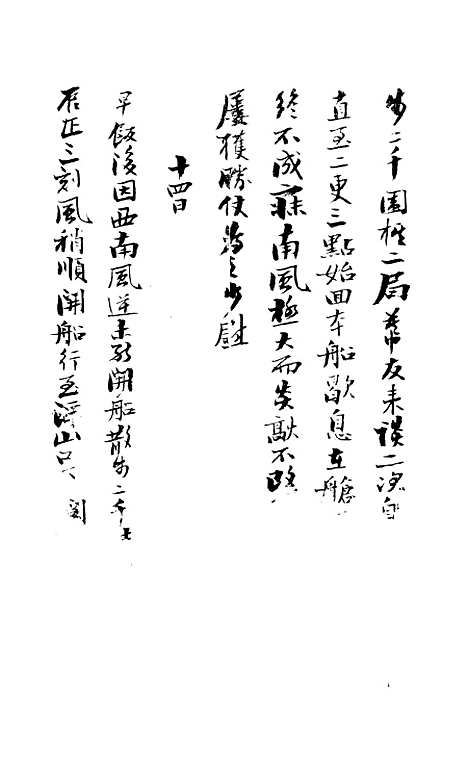 步二千圍棋二局幕友來談二次
直至二更三點始回本船歇息在艙
終不成寐南風極大而炎歊不
屢獲勝仗為之少慰
十四日
早飯後因西南風逆未能開船散步二千
辰正三刻風稍順開船行至